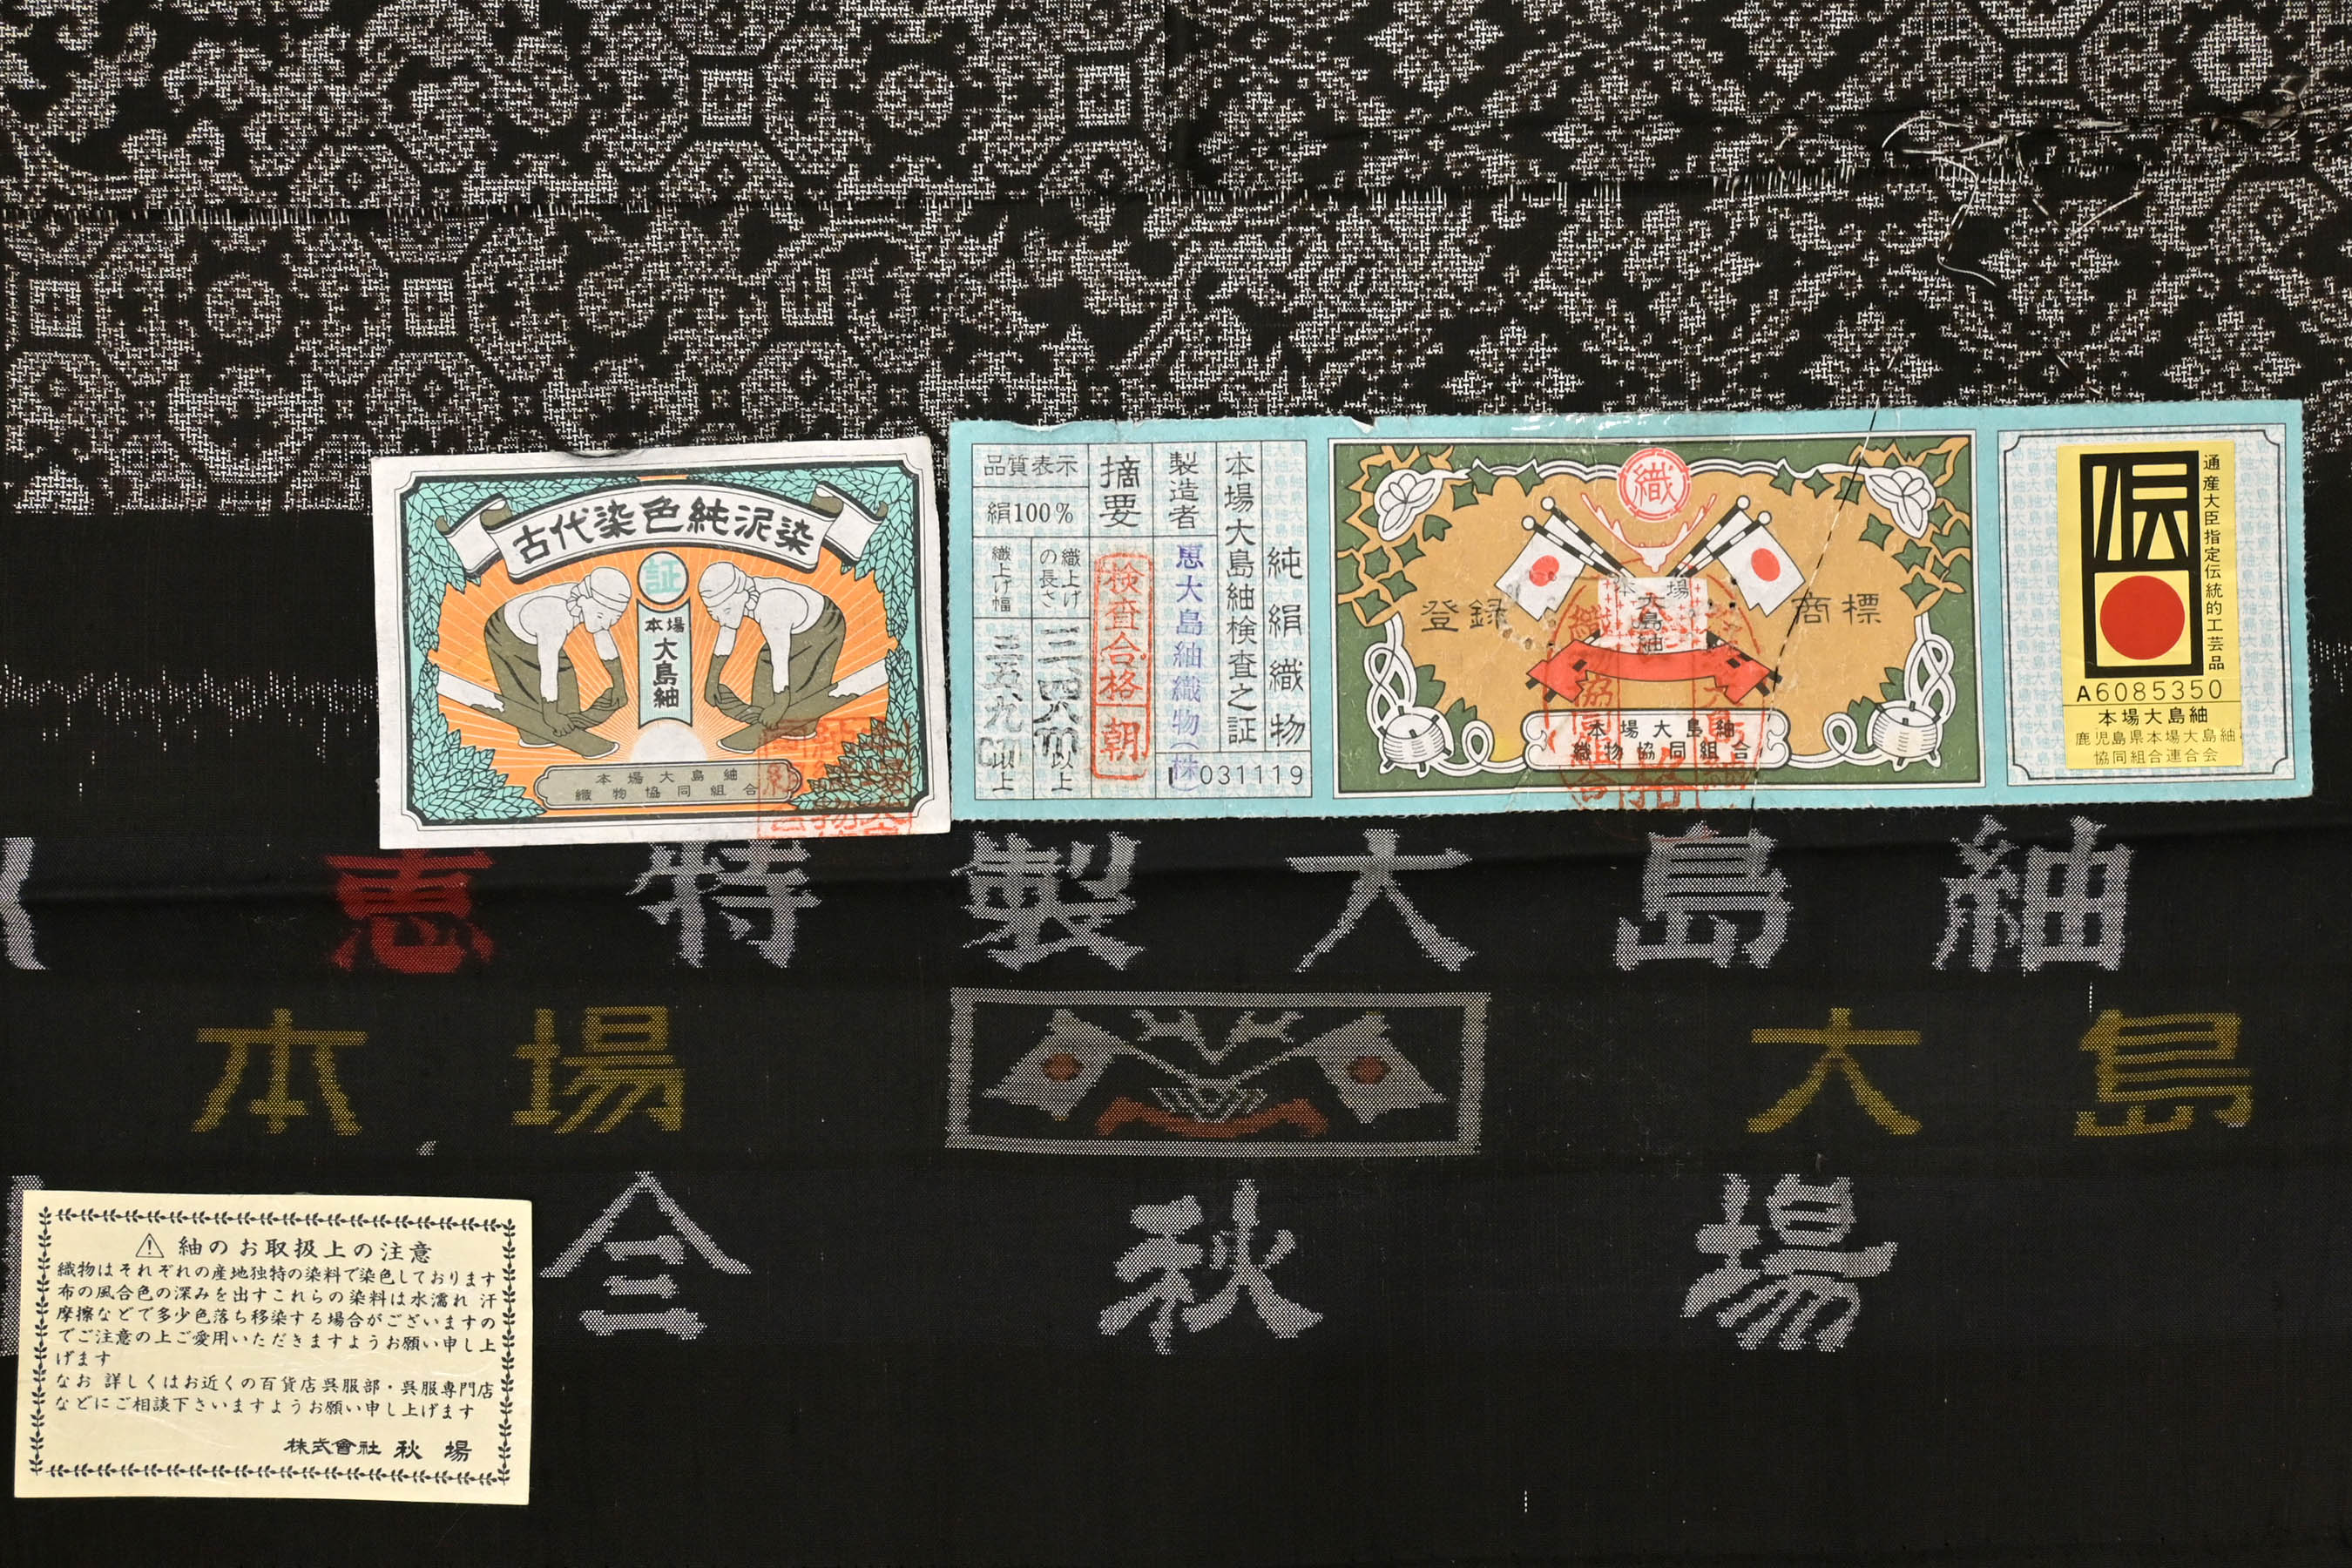 古代染色純泥染
証
本場
大島紬
本場大島紬
織物協同組合
純絹織物
本場大島紬検査之証
製造者
恵大島紬織物(株)
031119
摘要
検査合格
朝
品質表示
絹100%
織上げ
の長さ
以上
織上げ幅
以上
織
登録
商標
本場
大島紬
本場大島紬
織物協同組合
伝
通産大臣指定伝統的工芸品
A6085350
本場大島紬
鹿児島県本場大島紬
協同組合連合会
恵特製大島紬
本場
大島
秋場
⚠ 紬のお取扱上の注意
織物はそれぞれの産地独特の染料で染色しております
布の風合色の深みを出すこれらの染料は水濡れ 汗
摩擦などで多少色落ち移染する場合がございますの
でご注意の上ご愛用いただきますようお願い申し上
げます
なお 詳しくはお近くの百貨店呉服部・呉服専門店
などにご相談下さいますようお願い申し上げます
株式會社 秋場